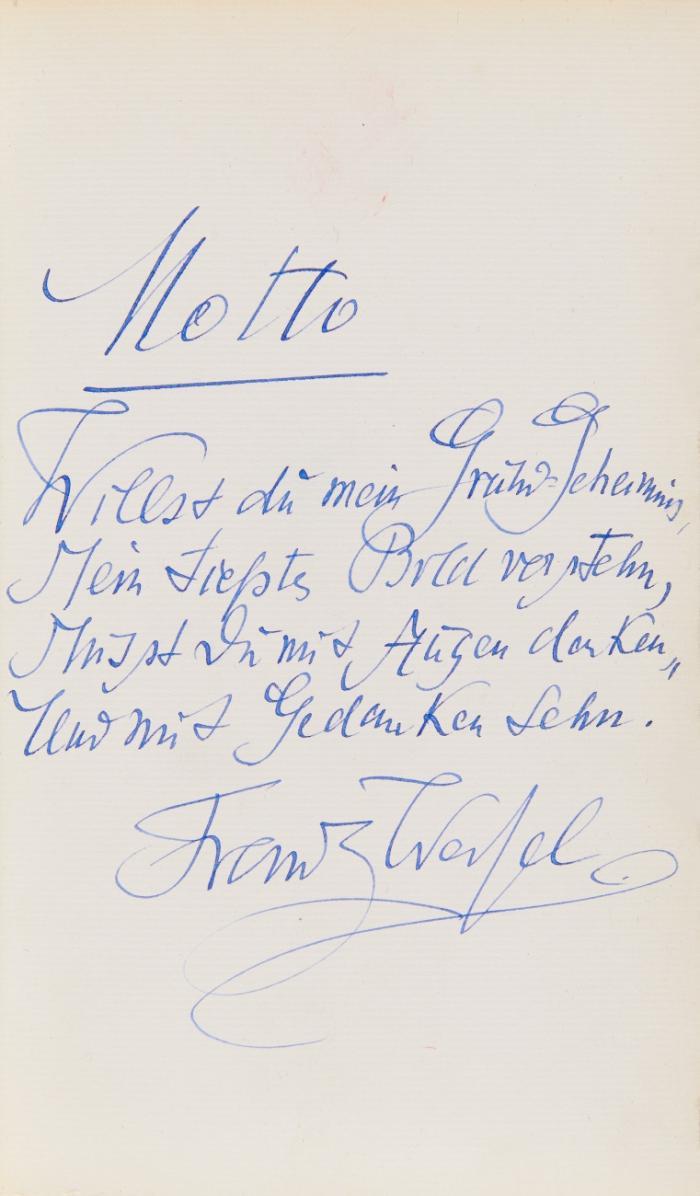 Motto
Willst du mein Grund-Geheimnis,
Mein tiefstes Bild verstehn,
Musst Du mit Augen denken,
Und mit Gedanken sehn.
Franz Werfel